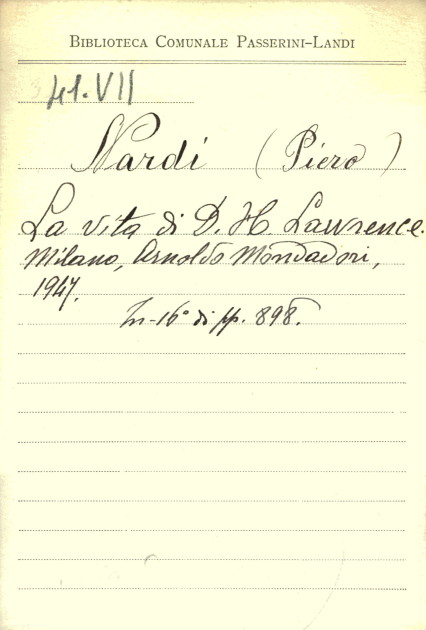 BIBLIOTECA COMUNALE PASSERINI-LANDI
41.VII
Nardi (Piero)
La vita di D. H. Lawrence.
Milano, Arnoldo Mondadori,
1947.
In-16° di pp. 898.